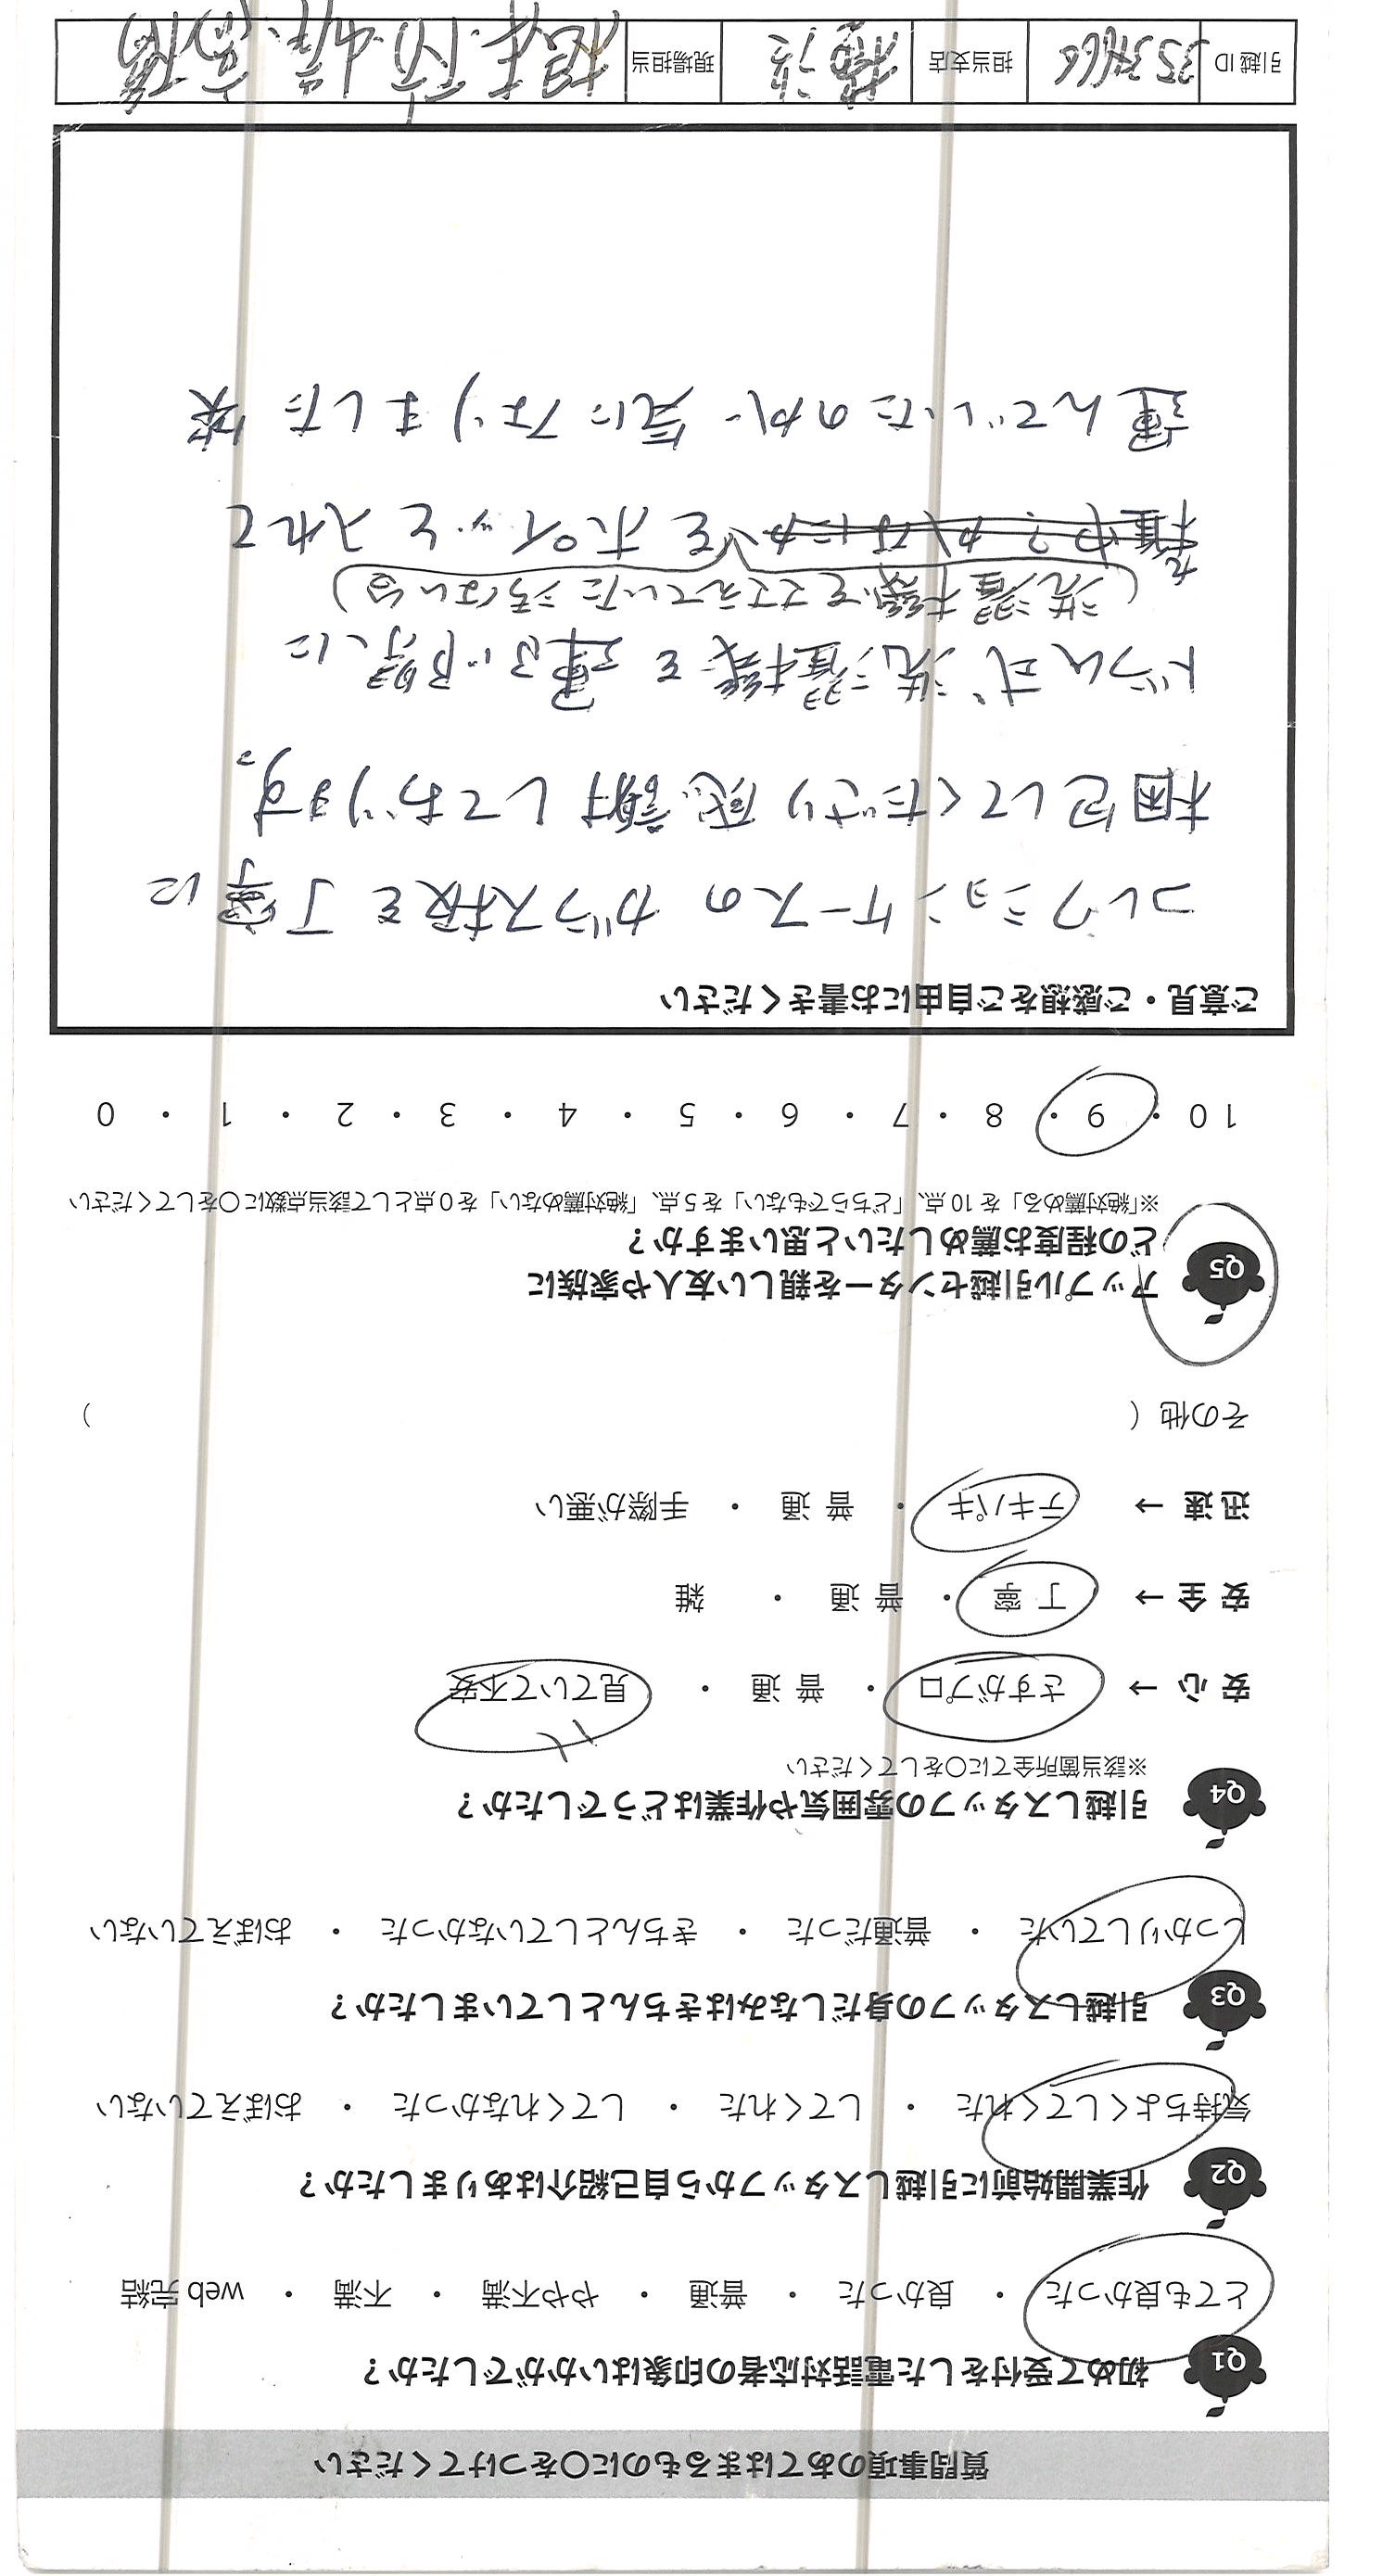 質問事項のあてはまるものに○をつけてください
Q1 初めて受付をした電話対応者の印象はいかがでしたか?
とても良かった ・ 良かった ・ 普通 ・ やや不満 ・ 不満 ・ web完結
Q2 作業開始前に引越しスタッフから自己紹介はありましたか?
気持ちよくしてくれた ・ してくれた ・ してくれなかった ・ おぼえていない
Q3 引越しスタッフの身だしなみはきちんとしていましたか?
しっかりしていた ・ 普通だった ・ きちんとしていなかった ・ おぼえていない
Q4 引越しスタッフの雰囲気や作業はどうでしたか?
※該当箇所全てに○をしてください
安心 → さすがプロ ・ 普通 ・ 見ていて不安
安全 → 丁寧 ・ 普通 ・ 雑
迅速 → テキパキ ・ 普通 ・ 手際が悪い
その他 ( )
Q5 アップル引越センターを親しい友人や家族に
どの程度お薦めしたいと思いますか?
※「絶対薦める」を10点、「どちらでもない」を5点、「絶対薦めない」を0点として該当点数に○をしてください
10 ・ 9 ・ 8 ・ 7 ・ 6 ・ 5 ・ 4 ・ 3 ・ 2 ・ 1 ・ 0
ご意見・ご感想をご自由にお書きください
コレクションケースのガラス板を丁寧に
梱包してくださり感謝しております。
ドラム式洗濯機を運ぶ際に
(洗濯機をささえていた ろはい台)
をポイッと入れて
運んでいたのが気になりました
引越ID 担当支店 横浜 現場担当